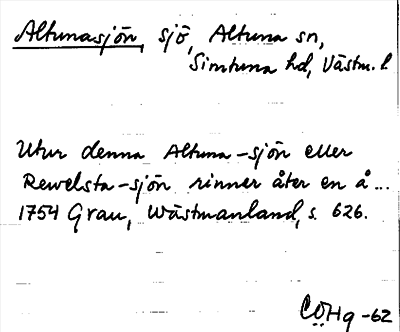 Altunasjön, sjö, Altuna sn,
Simtuna hd, Västm. l.
Utur denna Altuna-sjön eller
Rewelsta-sjön rinner åter en å...
1754 Grau, Wästmanland, s. 626.
CÖHg -62